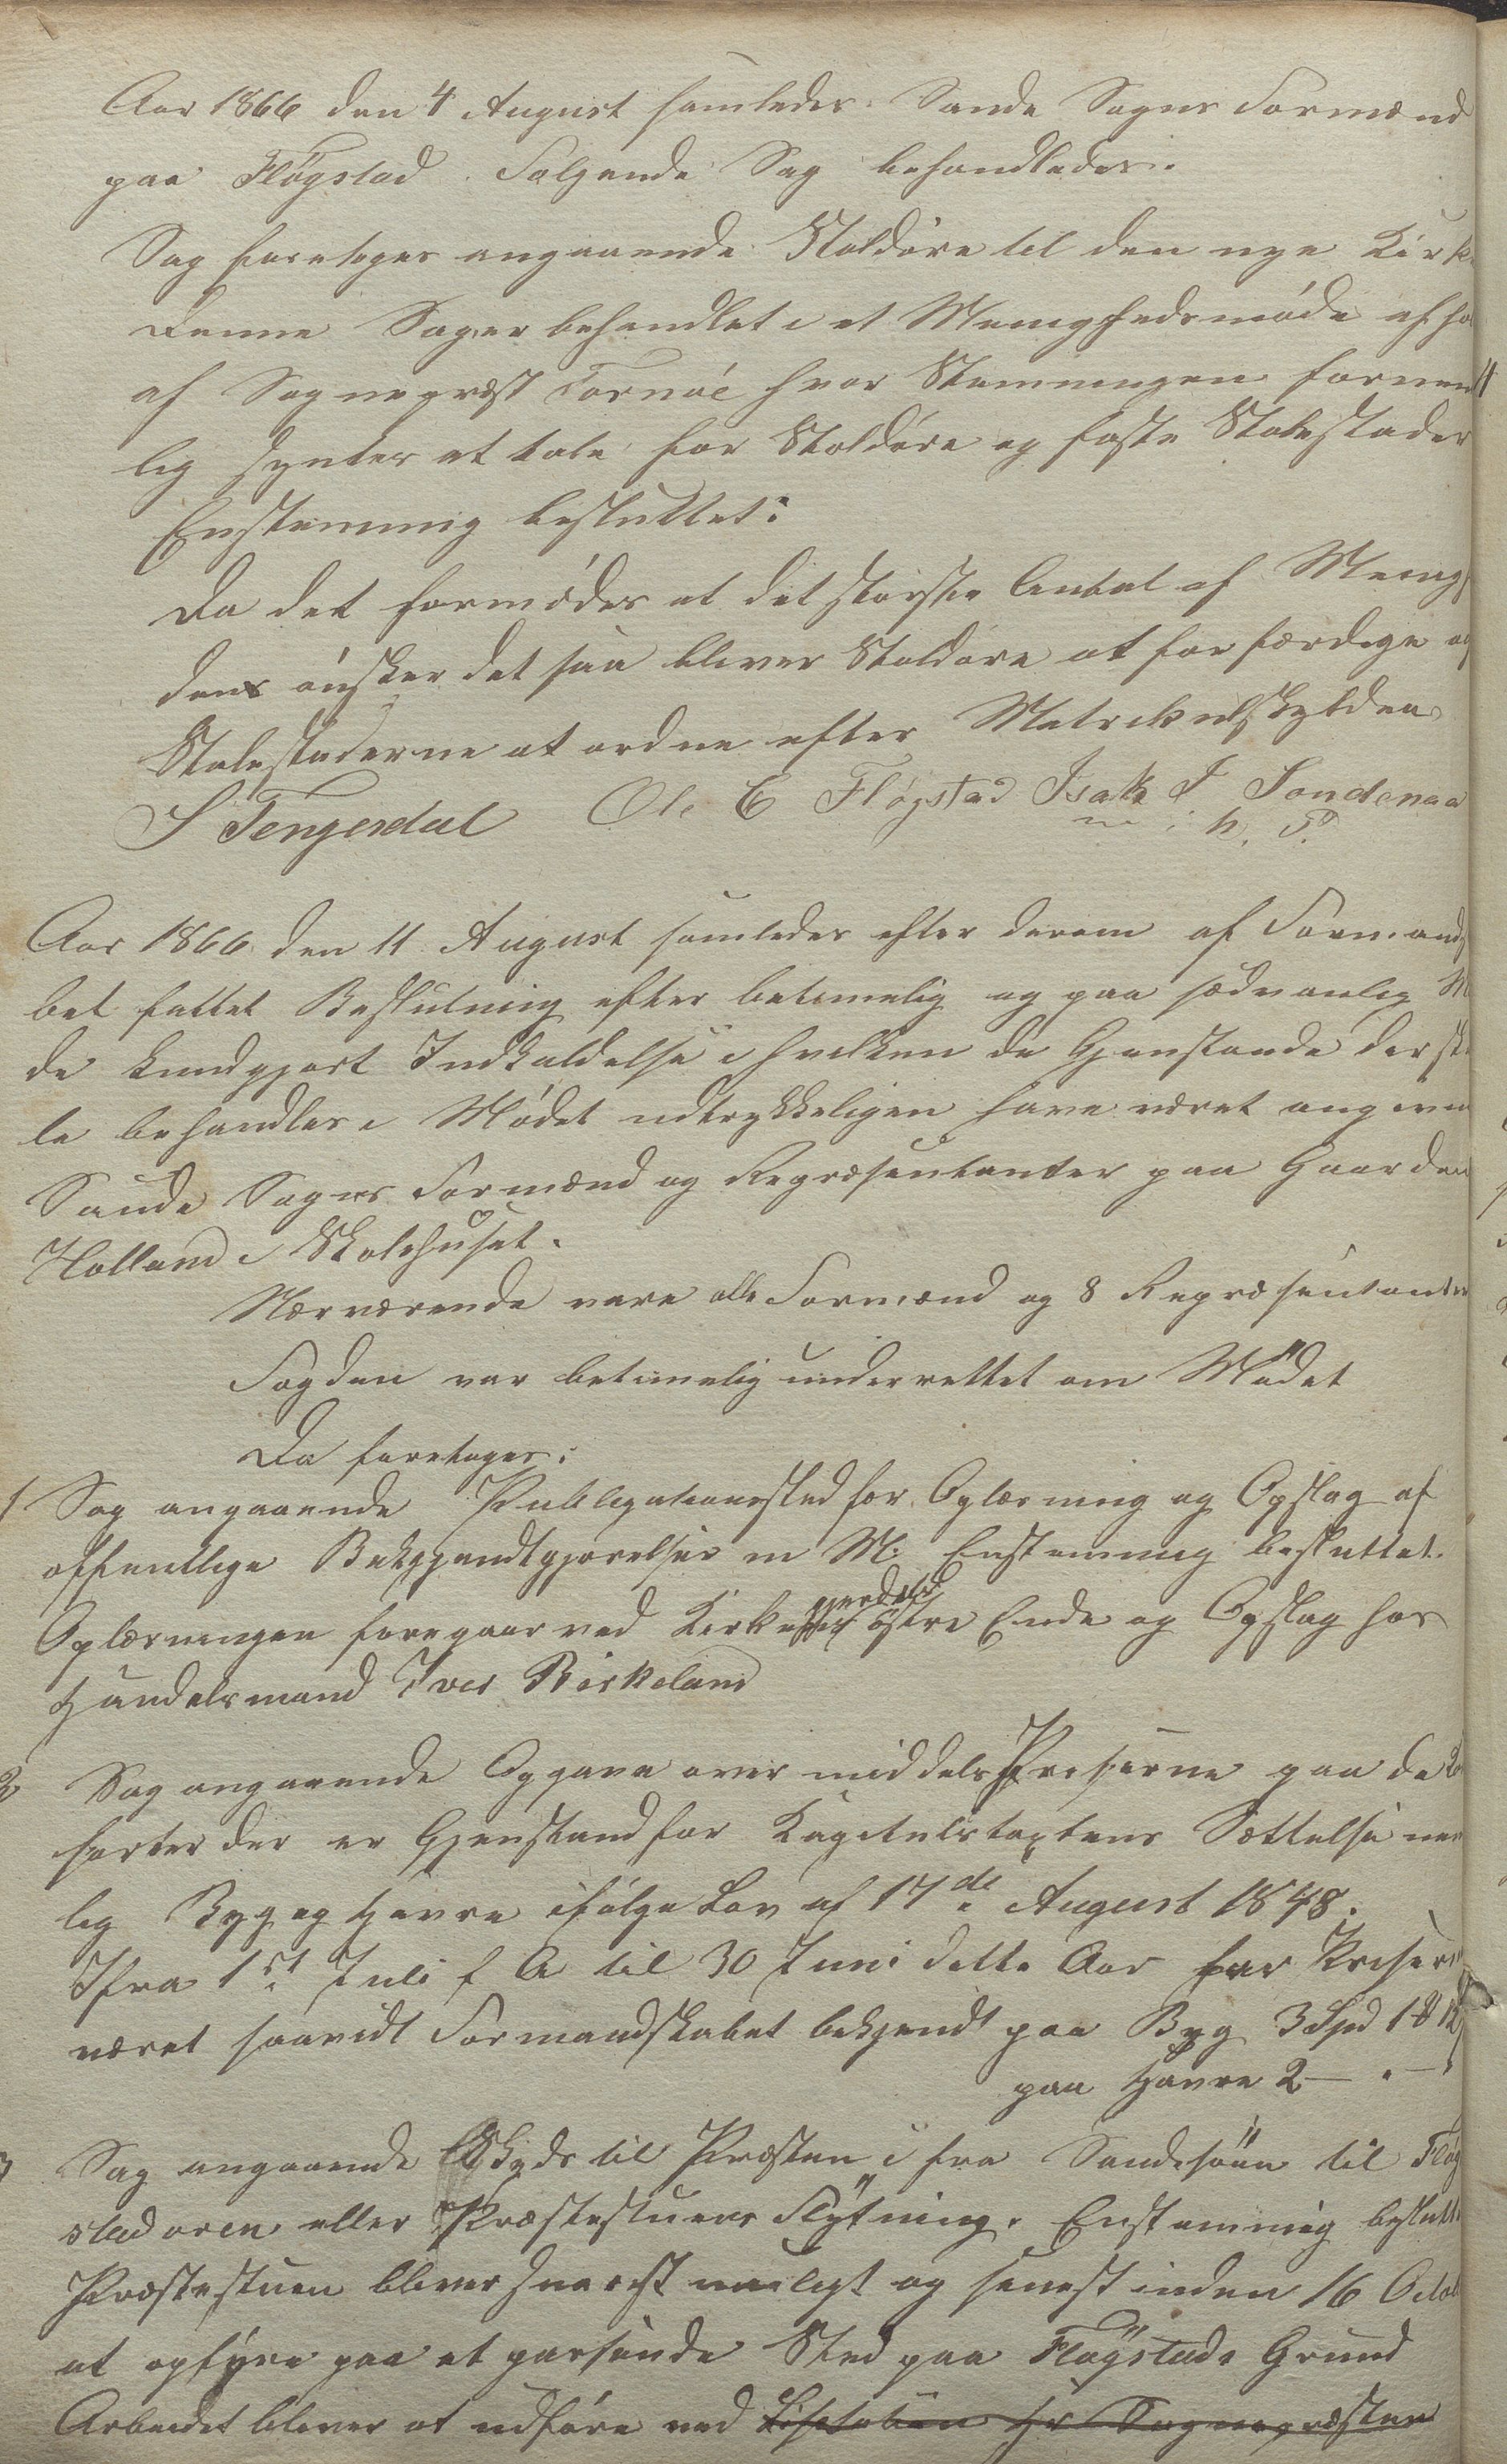 Aar 1866 den 4 August samledes Sande Sogns Formænd
paa Fløgstad. Følgende Sag behandledes.
Sag foretoges angaaende Stoldøre til den nye Kirk
Denne Sag er behandlet i et Menighedsmøde afho
af Sognepræst Tornøe hvor Stemningen fornem
lig syntes at tale for Stoldøre og faste Stolestader
Enstemmig besluttet:
Da det formodes at det største Antal af Menig
den ønsker det saa bliver Stoldøre at forfærdige og
Stolestaderne at ordne efter Matrikulskylden
S Tengesdal Ole E Fløgstad Isak I Sondenaa
m. i. h. P.
Aar 1866 den 11 August samledes efter derom af Formands
bet fattet Beslutning efter betimelig og paa sædvanlig M
de kundgjort Indkaldelse i hvilken de Gjenstande der sk
le behandles i Mødet udtrykkeligen have været angiven
Saude Sogns Formænd og Repræsentanter paa Gaarden
Holland i Skolehuset.
Nærværende vare alle Formænd og 8 Repræsentanter
Fogden var betimelig underrettet om Mødet
Da foretoges:
1 Sag angaaende Publigationssted for Oplæsning og Opslag af
offentlige Bekjendtgjørelser m M: Enstemmig besluttet.
Oplæsningen foregaar ved Kirke gjerdets østre Ende og Opslag hos
Handelsmand Iver Birkeland
2 Sag angaaende Opgave over middelsPriserne paa de
sorter der er Gjenstand for Kapitelstaxtens Sættelse nem
lig Byg og Havre ifølge Lov af 17de August 1848.
Ifra 1st Juli f A til 30 Juni dette Aar har Priser
været saavidt Formandskabet bekjendt paa Byg 3 Spd 1 ₰ 12
paa Havre 2 — " —
3 Sag angaaende Skyds til Præsten i fra Sandesøen til Fløg
stadoren eller Præstestuens Flytning. Enstemmig beslutt
Præstestuen bliver snarest muligt og senest inden 16 Octob
at opføre paa et passende Sted paa Fløgstads Grund
Arbeidet bliver at udføre ved Sognepræsten